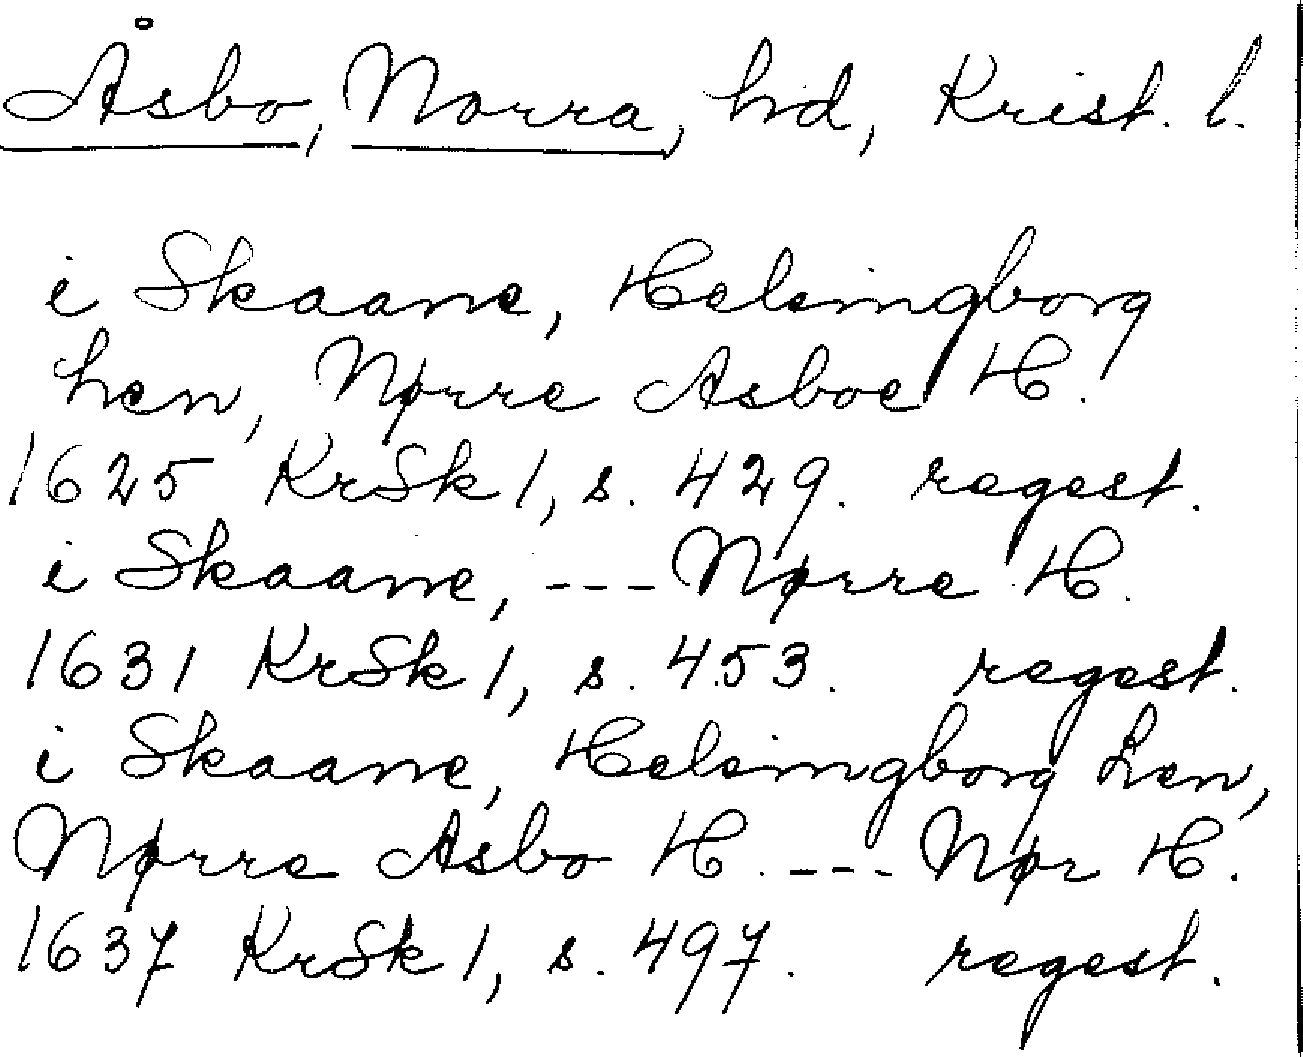 Åsbo, Norra, hd, Krist. l.
i Skaane, Helsingborg
Len, Nørre Asboe H.
1625 KrSk 1, s. 429. regest.
i Skaane, --- Nørre H.
1631 KrSk 1, s. 453. regest.
i Skaane, Helsingborg Len,
Nørre Asbo H. --- Nør H.
1637 KrSk 1, s. 497. regest.